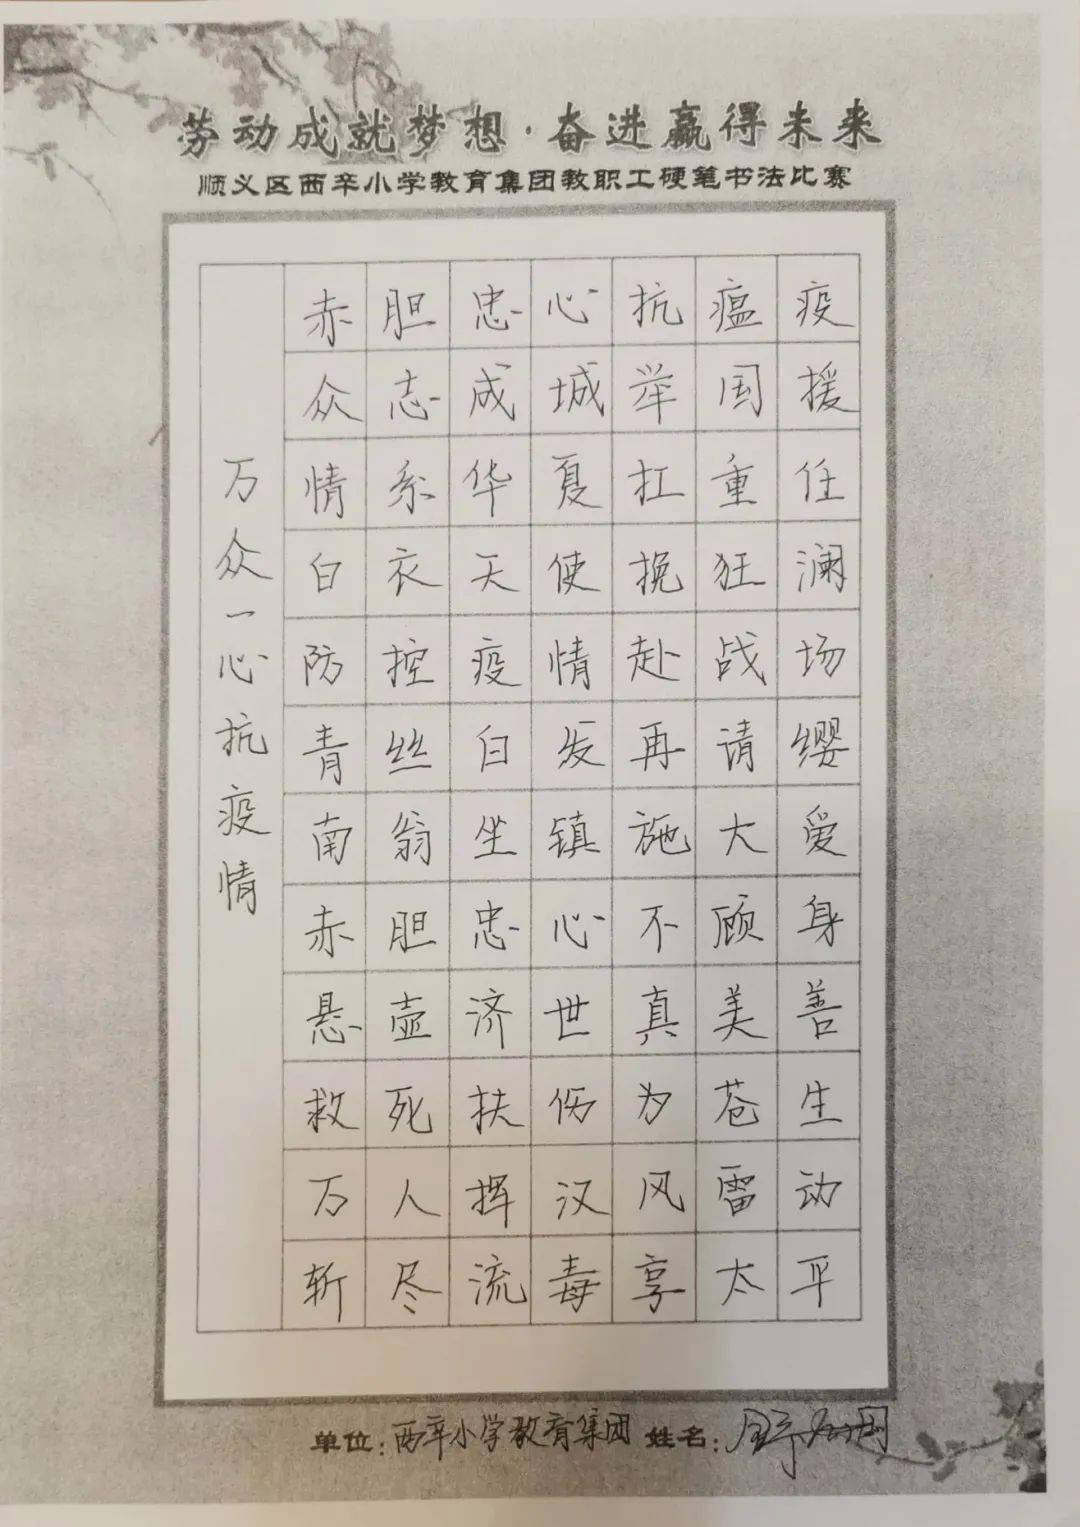 劳动成就梦想·奋进赢得未来
顺义区西辛小学教育集团教职工硬笔书法比赛
万众一心抗疫情
赤胆忠心抗瘟疫
众志成城举国援
情系华夏扛重任
白衣天使挽狂澜
防控疫情赴战场
青丝白发再请缨
南翁坐镇施大爱
赤胆忠心不顾身
悬壶济世真美善
救死扶伤为苍生
万人挥汉风雷动
斩尽流毒享太平
单位:西辛小学教育集团 姓名: